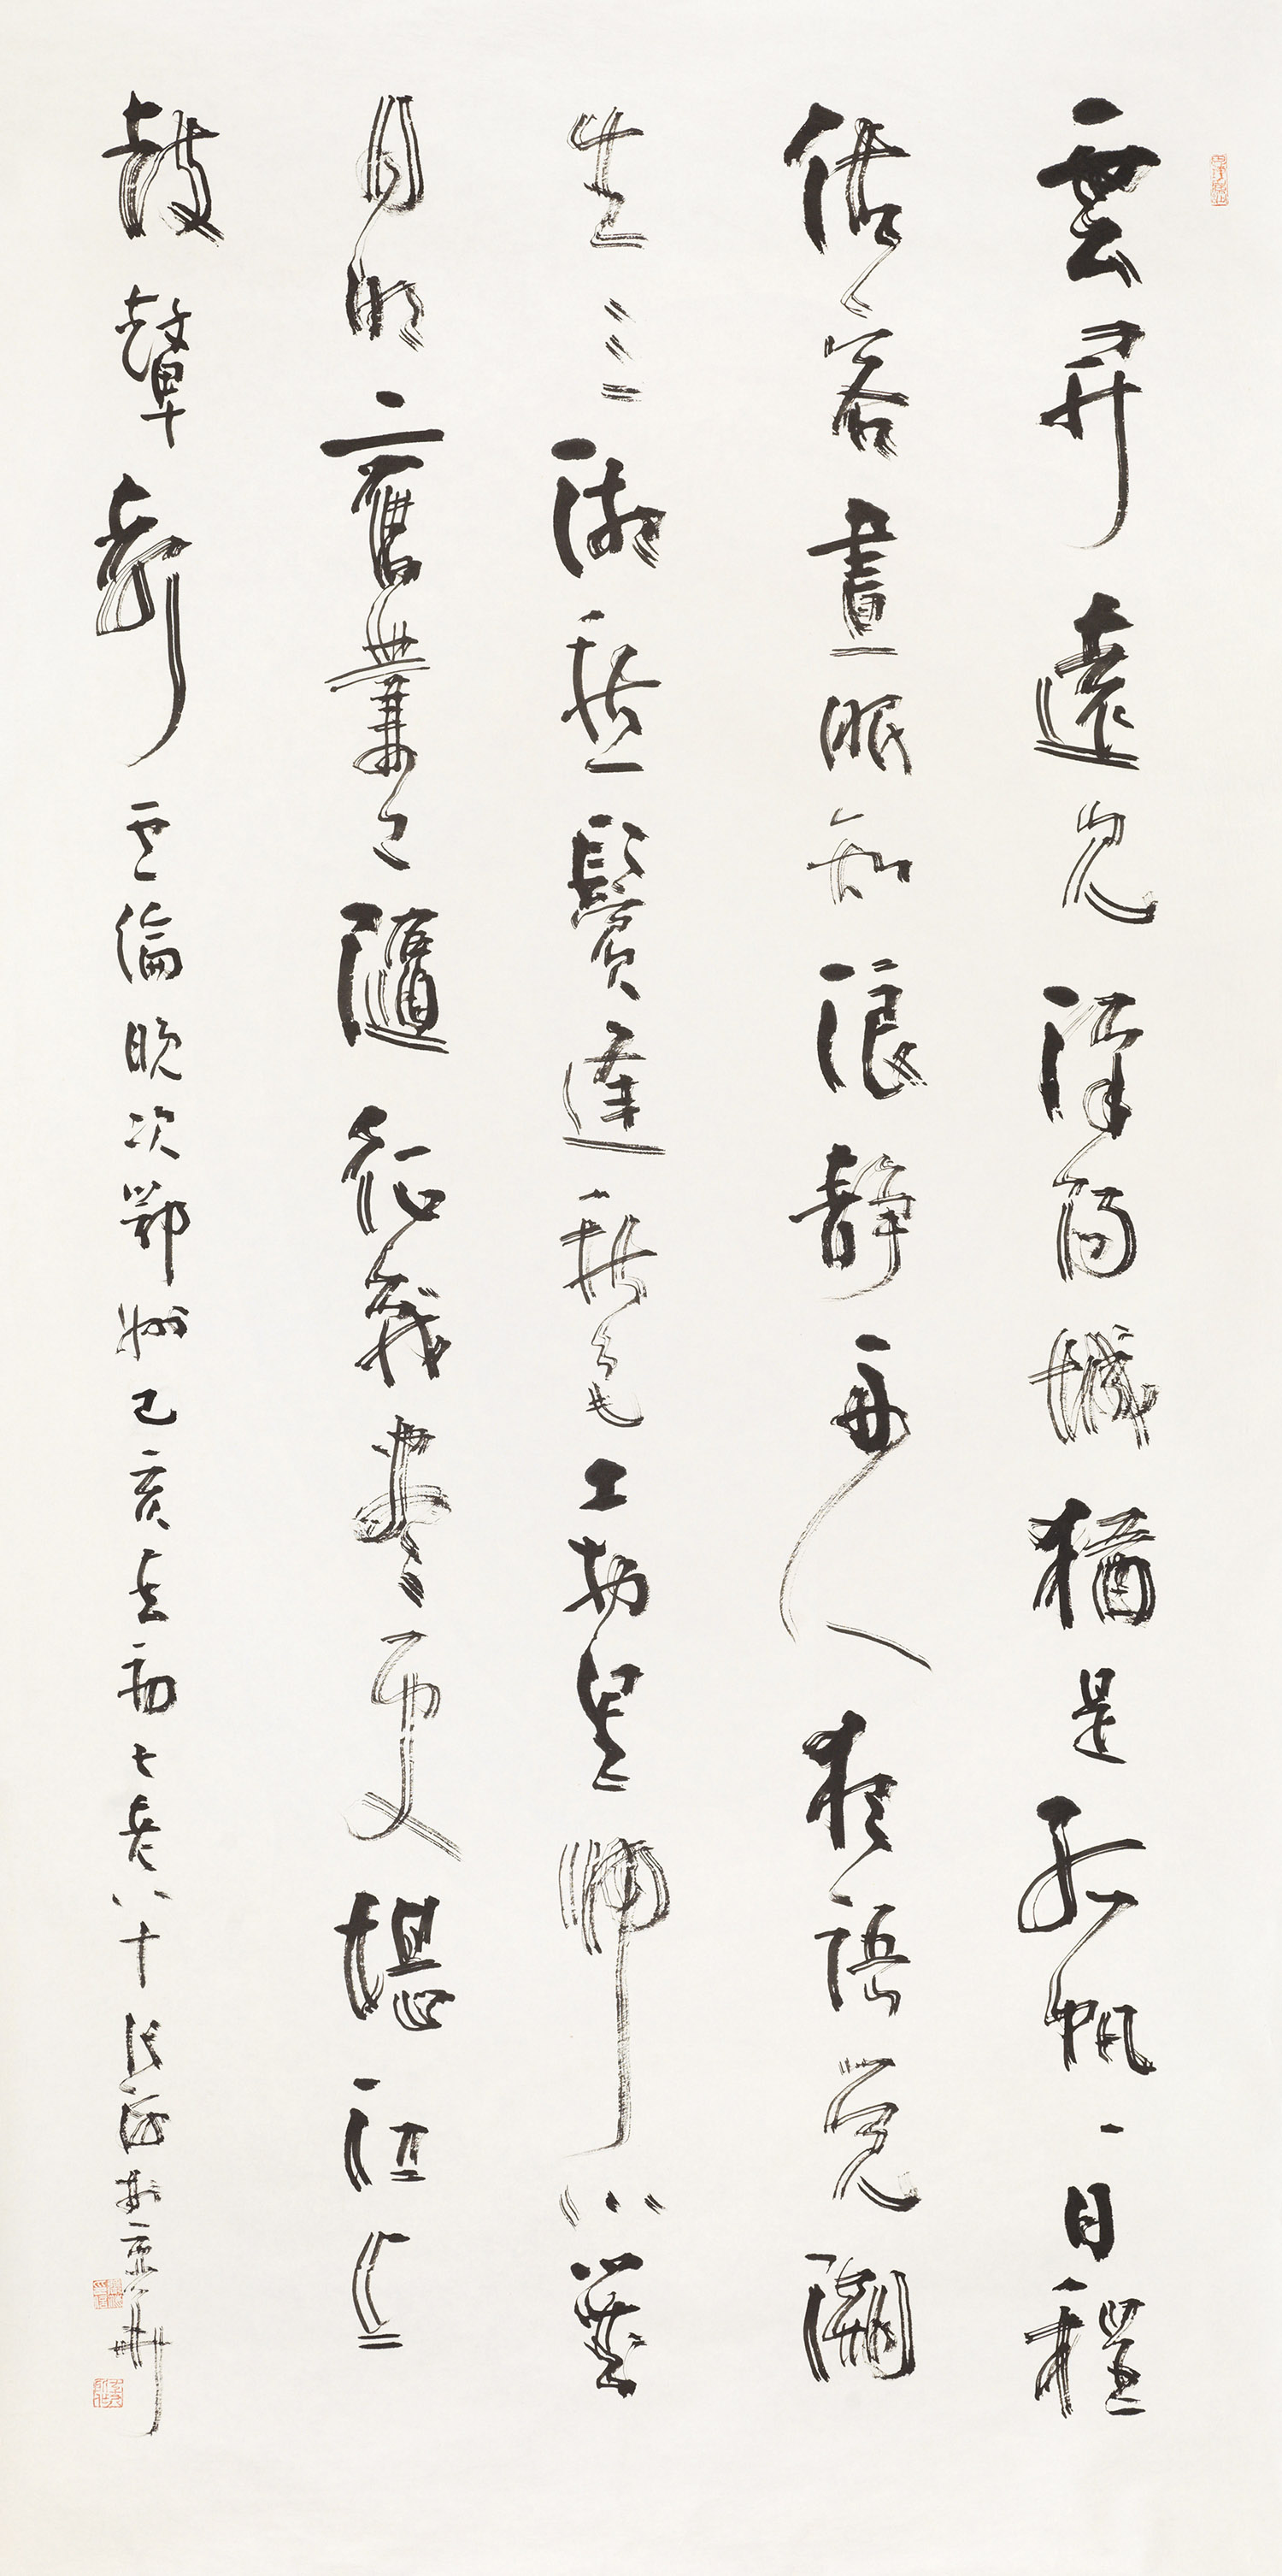 雲開遠見漢陽城猶是孤帆一日程
估客晝眠知浪靜舟人夜語覺潮
生三湘愁鬢逢秋色萬里歸心對
月明舊業已隨征戰盡更堪江上
鼓鼙聲 盧綸晚次鄂州己亥初七八十張海於京華